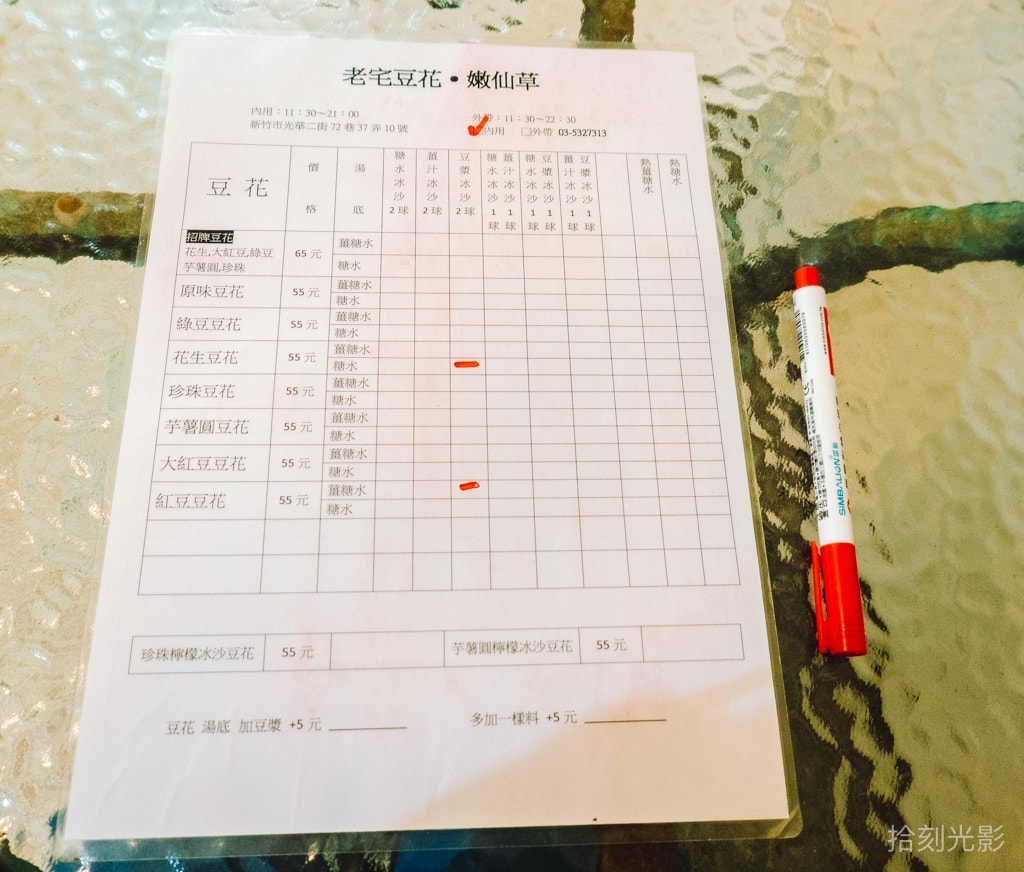 老宅豆花•嫩仙草
內用：11：30～21：00
外帶：11：30～22：30
新竹市光華二街 72 巷 37 弄 10 號
內用 □外帶 03-5327313
豆花
價格
湯底
糖水冰沙 2 球
薑汁冰沙 2 球
豆漿冰沙 2 球
糖水冰沙 1 球
薑汁冰沙 1 球
糖水冰沙 1 球
豆漿冰沙 1 球
薑汁冰沙 1 球
豆漿冰沙 1 球
熱薑糖水
熱糖水
招牌豆花
花生,大紅豆,綠豆
芋薯圓,珍珠
65 元
薑糖水
糖水
原味豆花 55 元
薑糖水
糖水
綠豆豆花 55 元
薑糖水
糖水
花生豆花 55 元
薑糖水
糖水
珍珠豆花 55 元
薑糖水
糖水
芋薯圓豆花 55 元
薑糖水
糖水
大紅豆豆花 55 元
薑糖水
糖水
紅豆豆花 55 元
薑糖水
糖水
珍珠檸檬冰沙豆花 55 元
芋薯圓檸檬冰沙豆花 55 元
豆花 湯底 加豆漿 +5 元
多加一樣料 +5 元
SIMBALION
拾刻光影